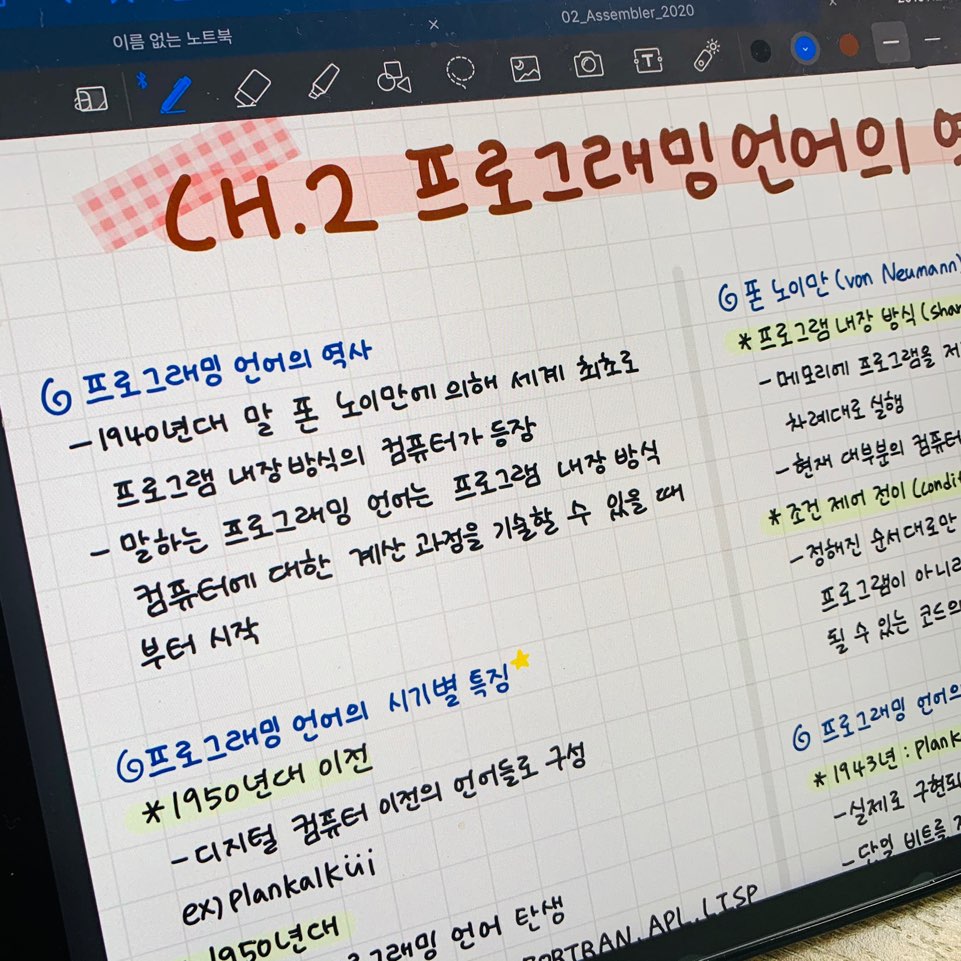 이름 없는 노트북
×
02_Assembler_2020
×
CH.2 프로그래밍 언어의
프로그래밍 언어의 역사
-1940년대 말 폰 노이만에 의해 세계 최초로
프로그램 내장방식의 컴퓨터가 등장
- 말하는 프로그래밍 언어는 프로그램 내장 방식
컴퓨터에 대한 계산 과정을 기술할 수 있을 때
부터 시작
프로그래밍 언어의 시기별 특징
*1950년대 이전
-디지털 컴퓨터 이전의 언어들로 구성
ex) Plankalküi
1950년대
프로그래밍 언어 탄생
FORTRAN, APL, LISP
폰 노이만 (von Neumann)
* 프로그램 내장 방식 (
- 메모리에 프로그램을
차례대로 실행
- 현재 대부분의 컴퓨터
* 조건 제어 전이 (
- 정해진 순서대로만
프로그램이 아니라
될 수 있는 코드의
프로그래밍 언어의
* 1943년 :
- 실제로
- 단일 비트를